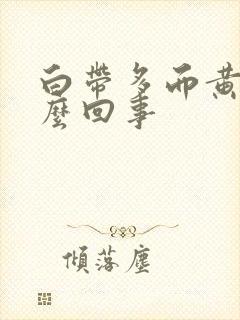 白帶多而黃
麼回事
傾落塵